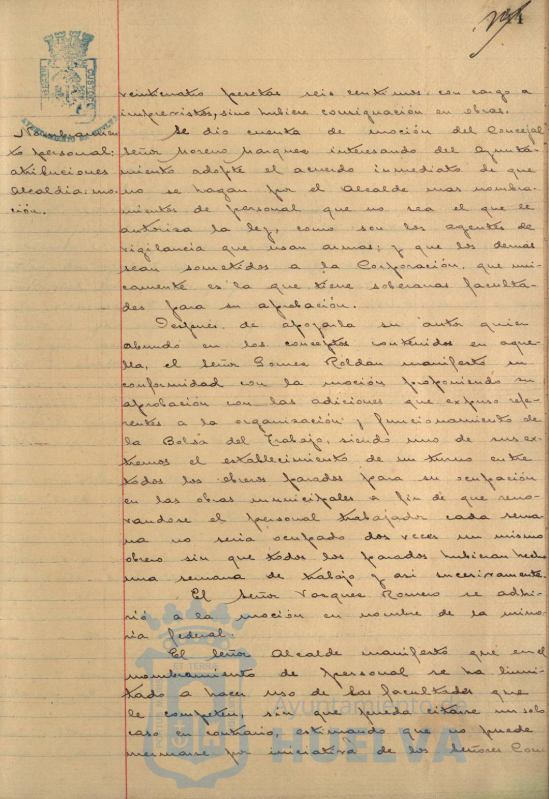 veinticuatro pesetas seis centimos. con cargo a
imprevistos, sino hubiere consignación en obras.
Nombramien
to personal:
atribuciones
Alcaldia: mo
ción.
Se dio cuenta de moción del Concejal
Señor Moreno Marquez interesando del Ayunta-
miento adopte el acuerdo inmediato de que
no se hagan por el Alcalde mas nombra-
mientos de personal que no sea el que le
autoriza la ley, como son los agentes de
vigilancia que usan armas; y que los demás
sean sometidos a la Corporación, que uni-
camente es la que tiene soberanas faculta-
des para su aprobación.
Despues de apoyarla su autor quien
abundo en los conceptos contenidos en aque-
lla, el Señor Gomez Roldán manifestó su
conformidad con la moción proponiendo su
aprobación con las adiciones que expuso refe-
rentes a la organización y funcionamiento de
la Bolsa del Trabajo, siendo uno de sus ex-
tremos el establecimiento de un turno entre
todos los obreros parados para su ocupación
en las obras municipales a fin de que reno-
vandose el personal trabajador cada sema-
na no seria ocupado dos veces un mismo
obrero sin que todos los parados hubieran hecho
una semana de trabajo y asi sucesivamente.
El Señor Vazquez Romero se adhi-
rió a la moción en nombre de la mino-
ria federal.
El Señor Alcalde manifestó que en el
nombramiento de personal se ha limi-
tado a hacer uso de las facultades que
le competen, sin que pueda citarse un solo
caso en contrario, estimando que no puede
mermarse por iniciativa de los Señores Con
Ayuntamiento de
HUELVA